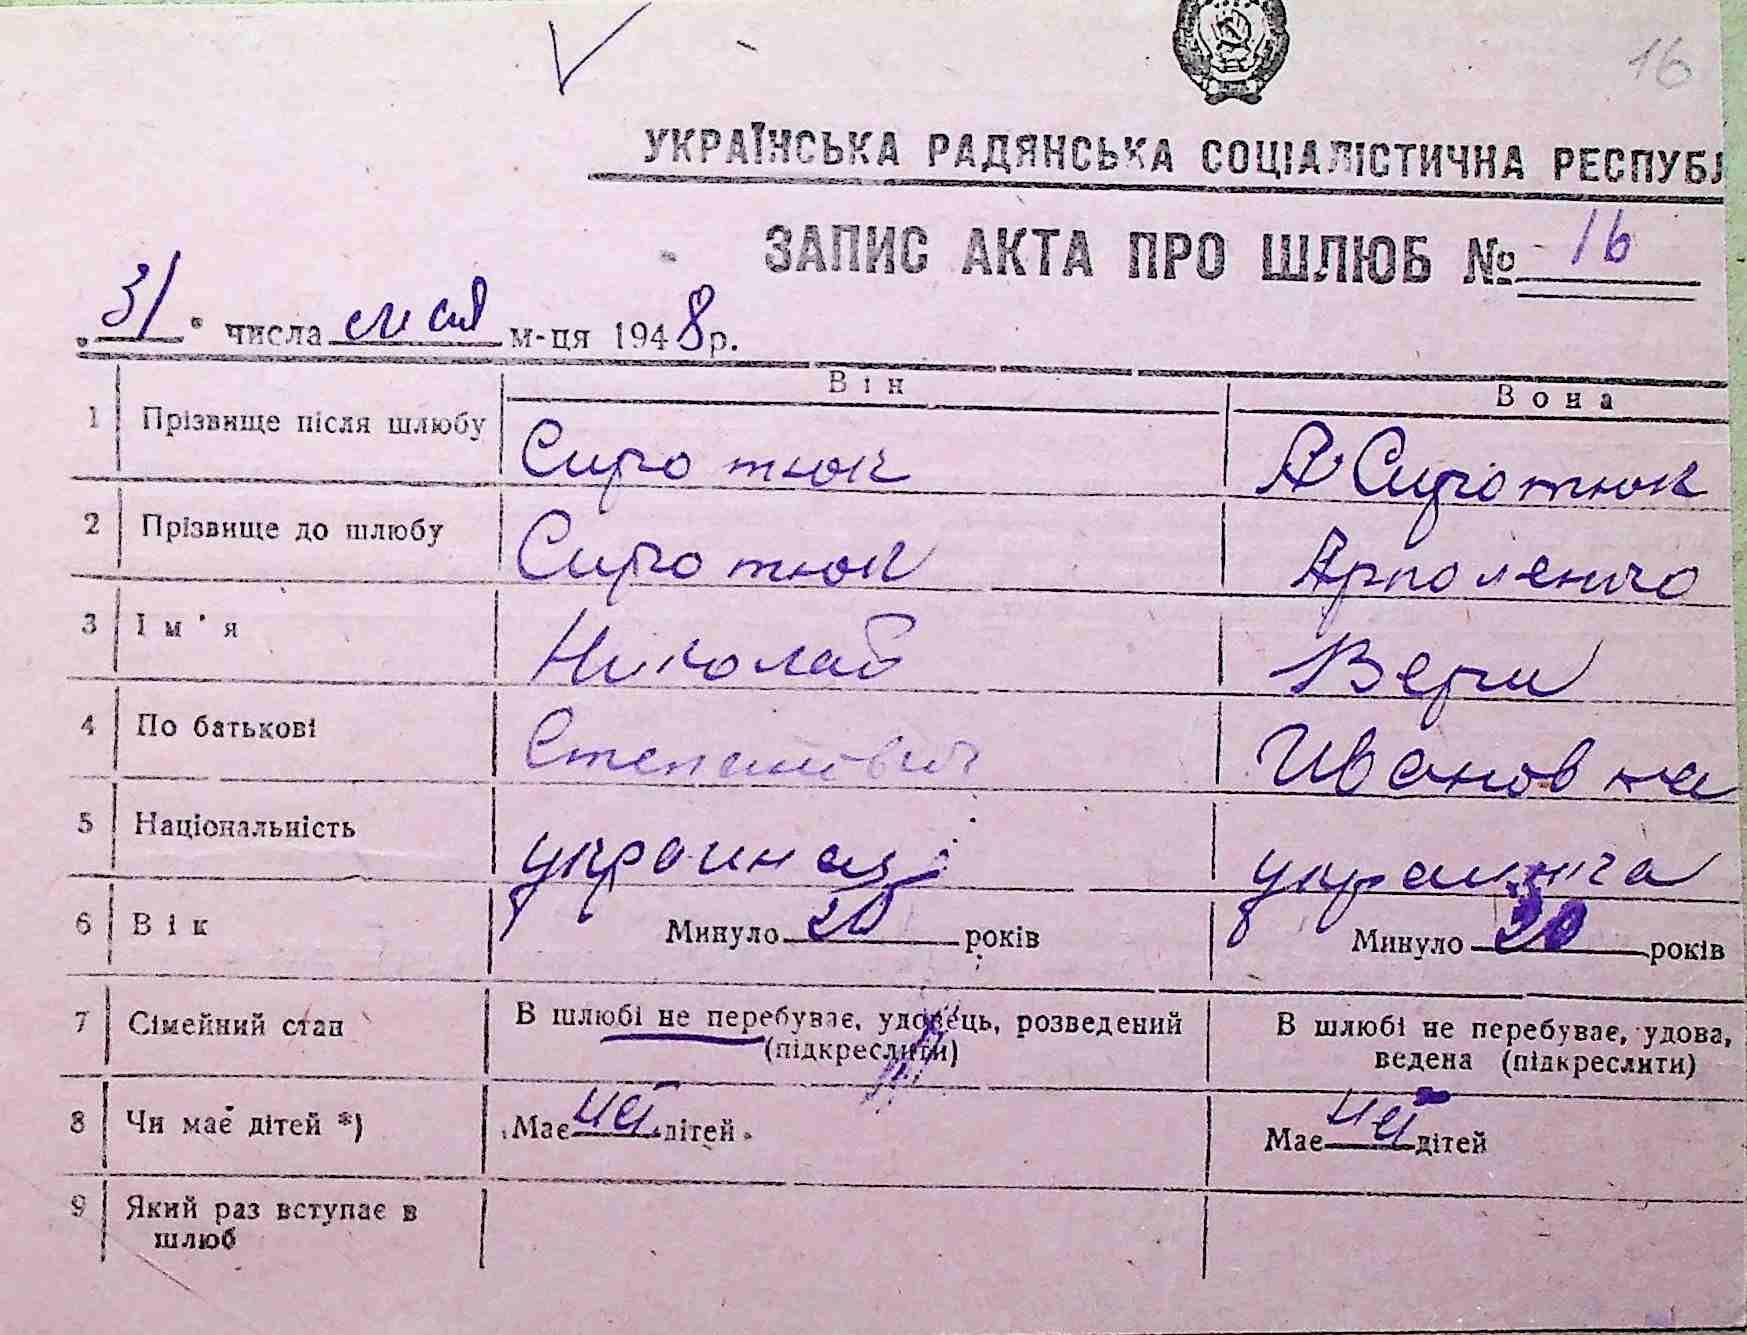 16
УКРАЇНСЬКА РАДЯНСЬКА СОЦІАЛІСТИЧНА РЕСПУБЛ
ЗАПИС АКТА ПРО ШЛЮБ № 16
„31" числа мая м-ця 1948 р.
Він Вона
1 Прізвище після шлюбу Сиротюк А Сиротюк
2 Прізвище до шлюбу Сиротюк
3 Ім'я Николай Вера
4 По батькові Степанович Ивановна
5 Національність украинец украинка
6 Вік Минуло 20 років Минуло 20 років
7 Сімейний стан В шлюбі не перебуває, удовець, розведений (підкреслити) В шлюбі не перебуває, удова, ведена (підкреслити)
8 Чи має дітей *) Має нет дітей Має нет дітей
9 Який раз вступає в шлюб